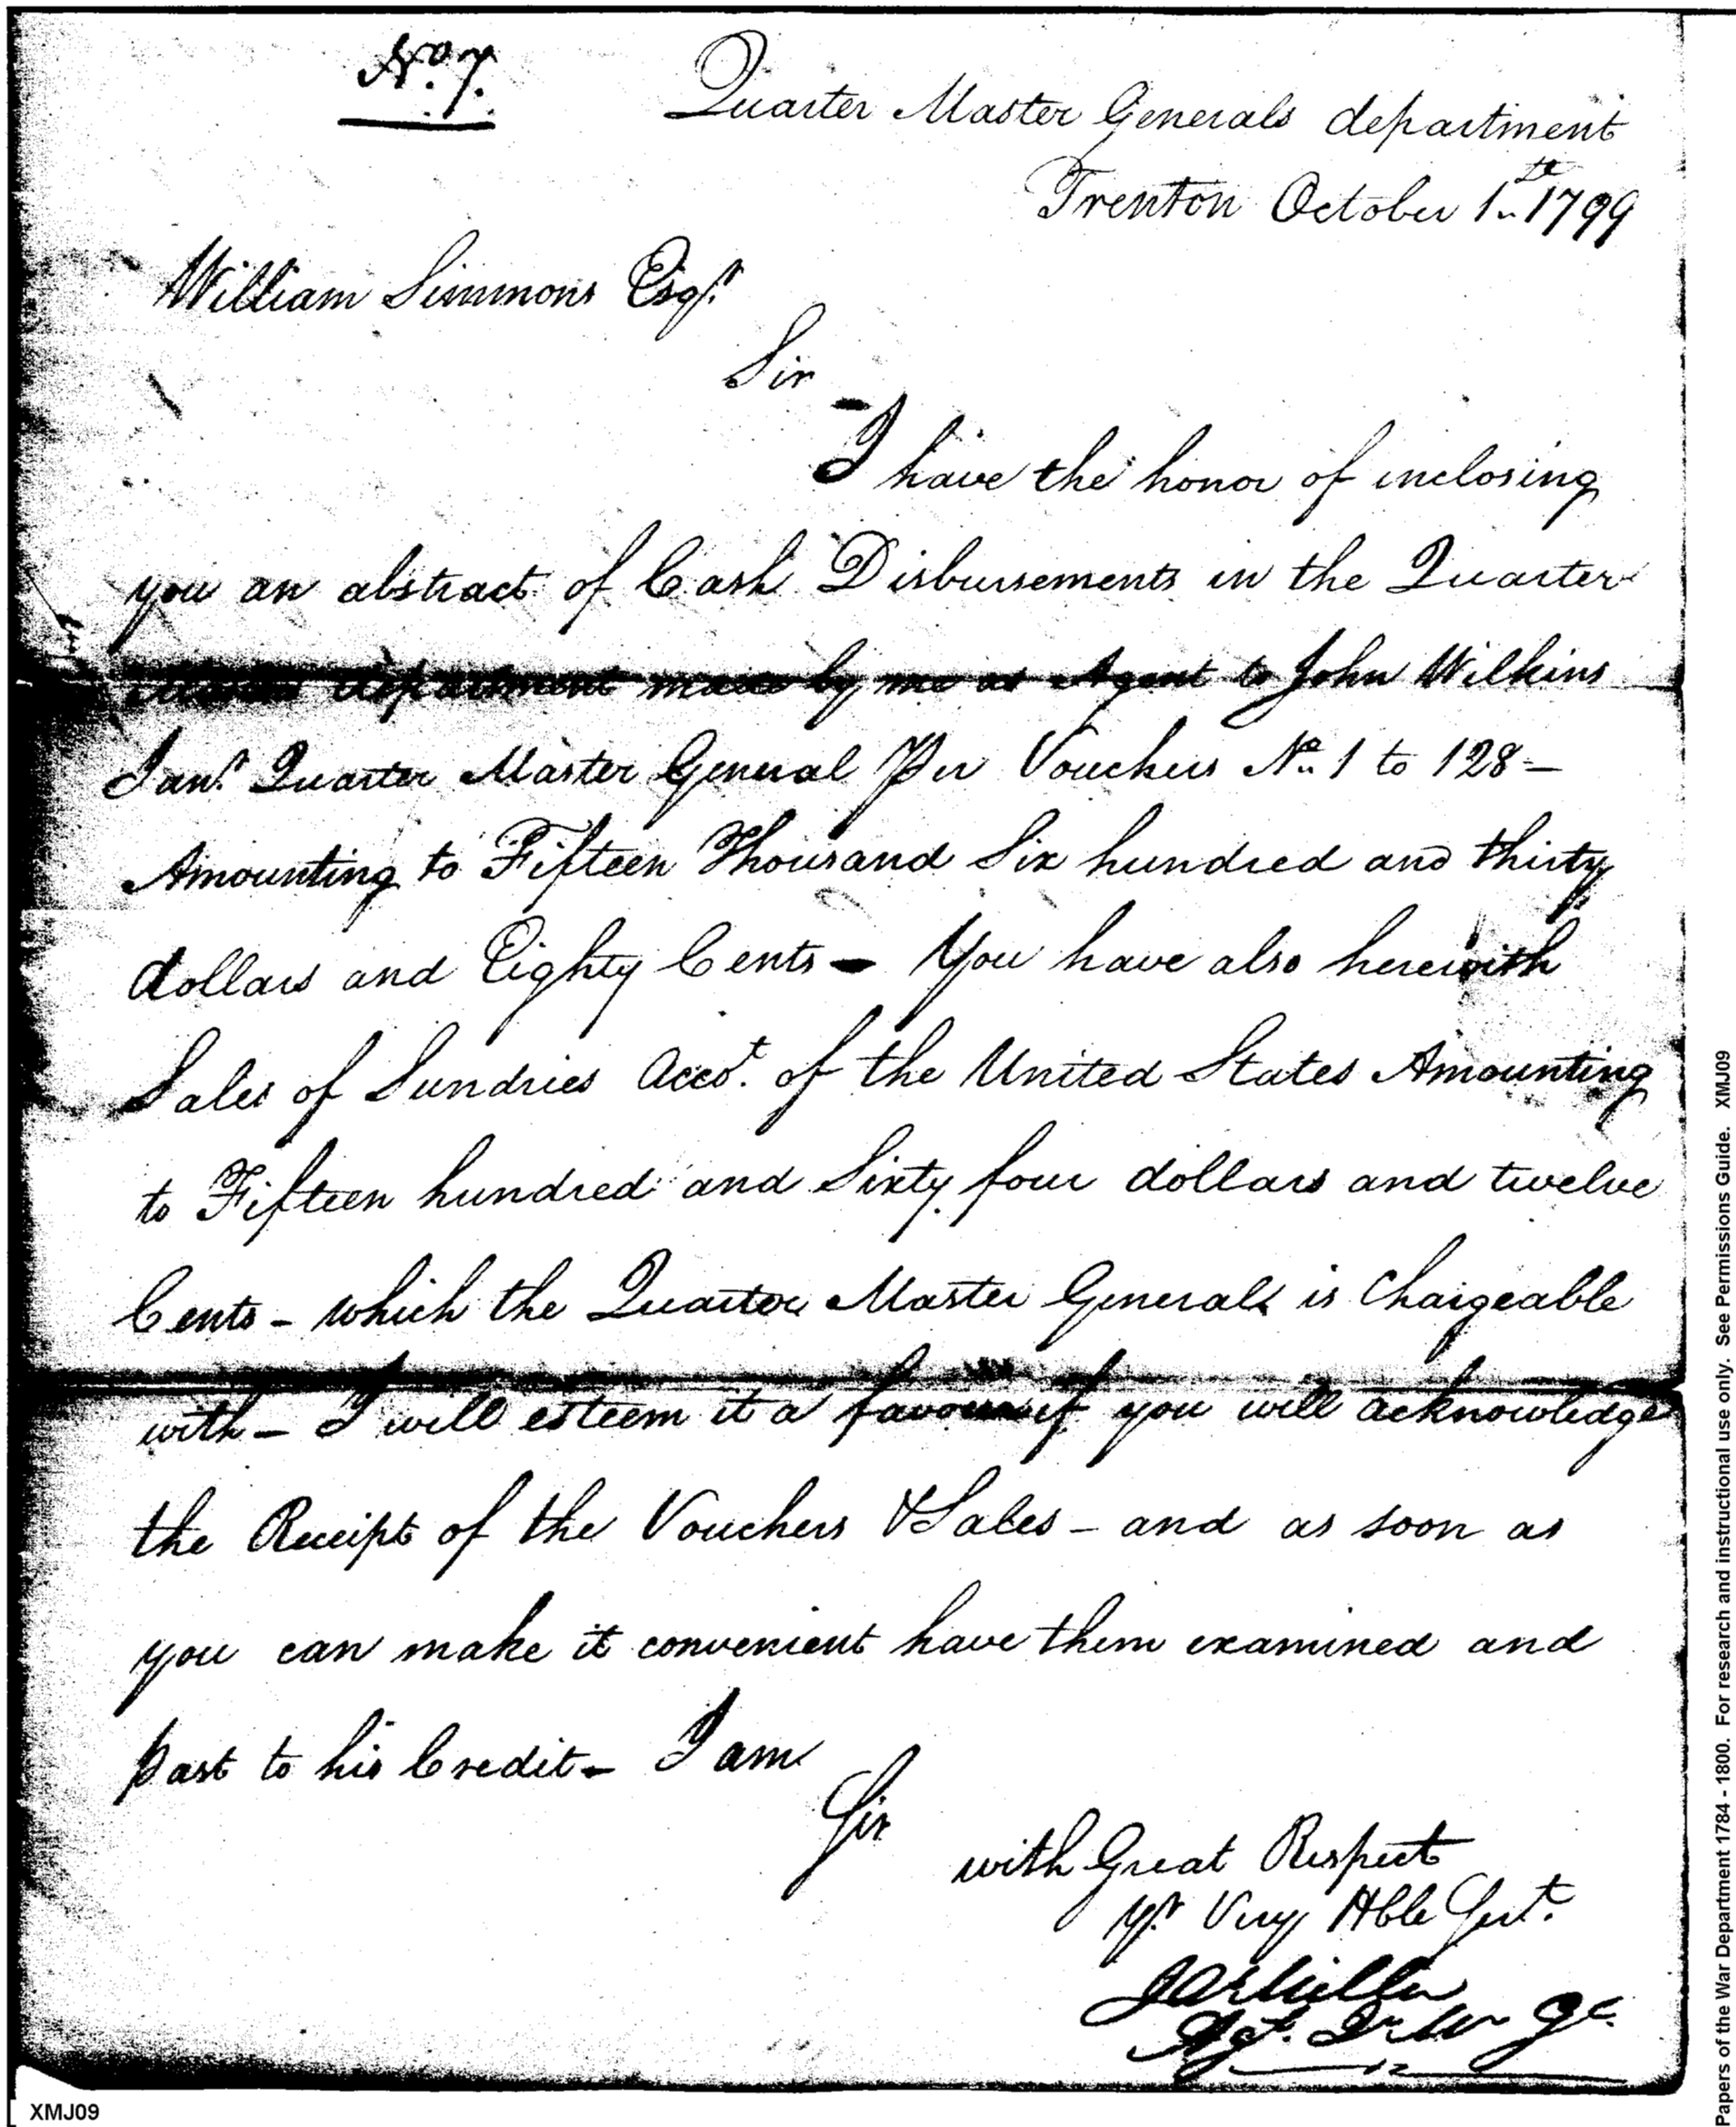 No. 7.
Quarter Master Generals department
Trenton October 1st 1799
William Simmons Esqr.
Sir
I have the honor of inclosing
you an abstract of Cash Disbursements in the Quarter
Masters department made by me as Agent to John Wilkins
Junr. Quarter Master General Per Vouchers No. 1 to 128 –
Amounting to Fifteen Thousand Six hundred and thirty
dollars and Eighty Cents – You have also herewith
Sales of Sundries Accot. of the United States Amounting
to Fifteen hundred and Sixty four dollars and twelve
Cents – which the Quarter Master General is Chargeable
with – I will esteem it a favour if you will acknowledge
the Receipt of the Vouchers & Sales – and as soon as
you can make it convenient have them examined and
past to his Credit – I am
Sir
with Great Respect
Yr. Very Hble Servt.
Jas Miller
Agt. Qr. Mr. Gl.
XMJ09
Papers of the War Department 1784 - 1800. For research and instructional use only. See Permissions Guide. XMJ09